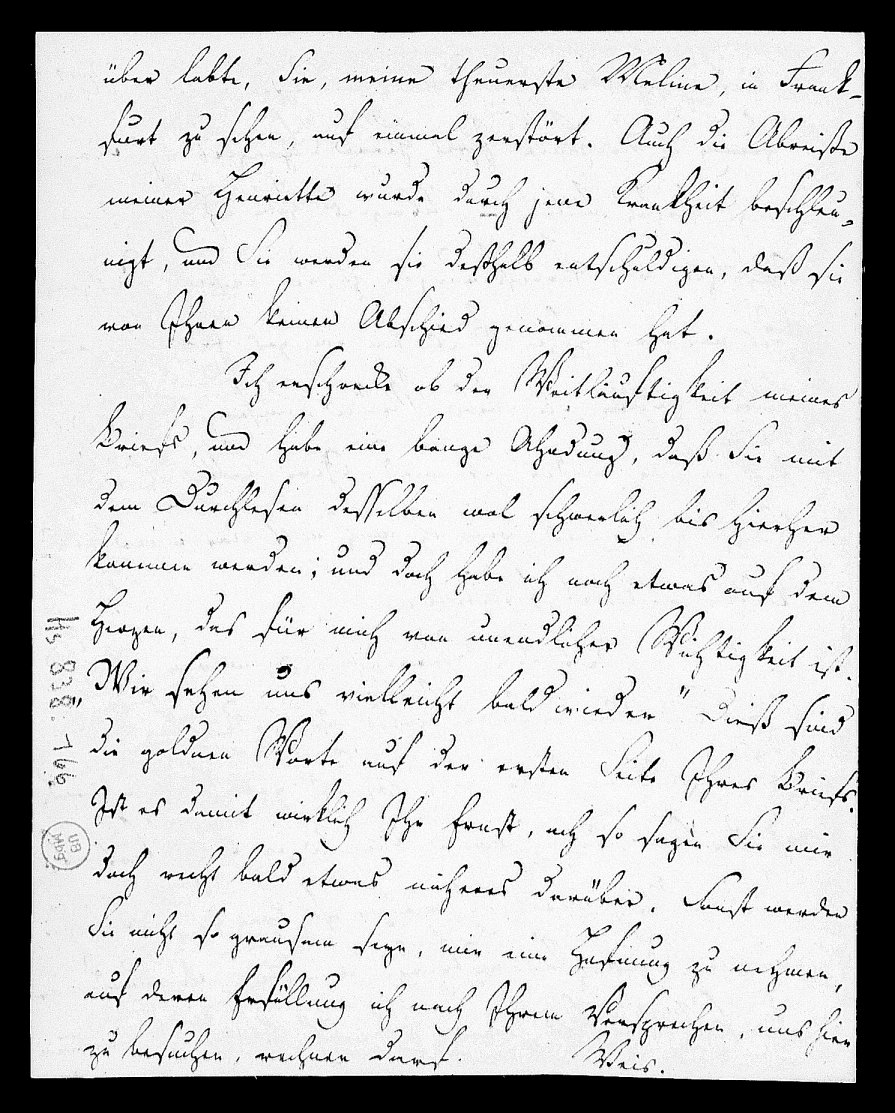 über labte, Sie, meine theuerste Meline, in Frank-
furt zu sehen, auf einmal zerstört. Auch die Abreise
meiner Henriette wurde durch jene Krankheit beschleu-
nigt, und Sie werden sie deßhalb entschuldigen, daß sie
von Ihnen keinen Abschied genommen hat.
Ich erschrecke ob der Weitläuftigkeit meines
Briefs, und habe eine bange Ahndung, daß Sie mit
dem Durchlesen desselben wol schwerlich bis hierher
kommen werden; und doch habe ich noch etwas auf dem
Herzen, das für mich von unendlicher Wichtigkeit ist.
„Wir sehen uns vielleicht bald wieder" Dieß sind
die goldnen Worte auf der ersten Seite Ihres Briefs.
Ist es damit wirklich Ihr Ernst, ach so sagen Sie mir
doch recht bald etwas näheres darüber. Sonst werden
Sie nicht so grausam seyn, mir eine Hofnung zu nehmen,
auf deren Erfüllung ich nach Ihrem Versprechen, uns hier
zu besuchen, rechnen darf. Weis.
Hs 838: 166
UB
Mbg